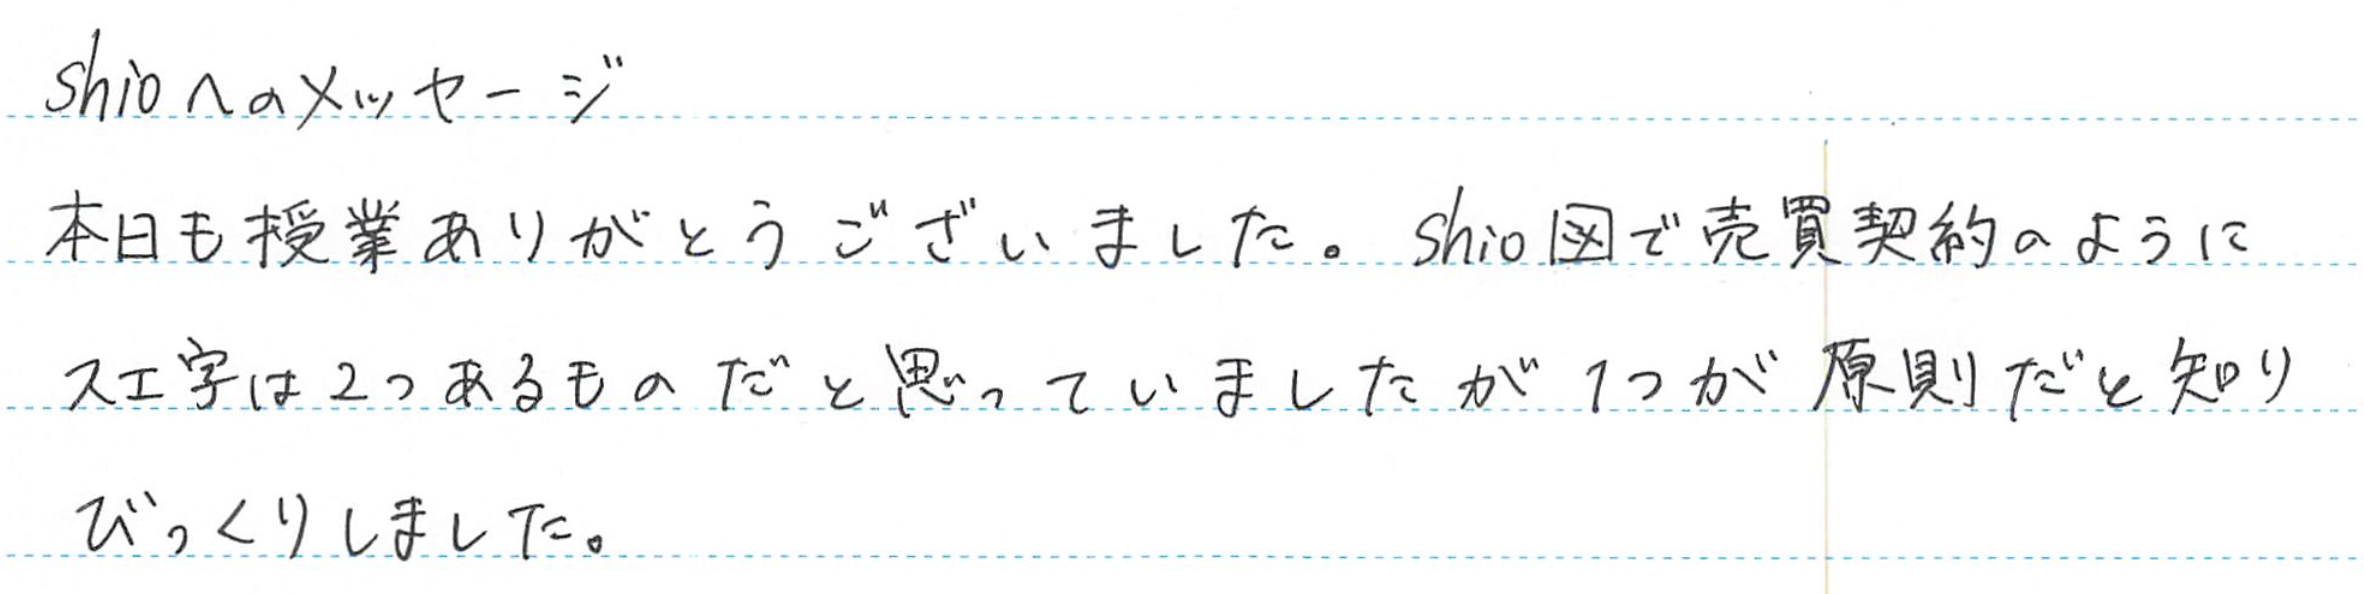 Shioへのメッセージ
本日も授業ありがとうございました。Shio図で売買契約のように
スエ字は2つあるものだと思っていましたが1つが原則だと知り
びっくりしました。